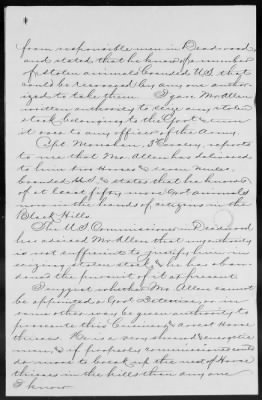 from responsible men in Deadwood,
and stated that he knew of a number
of stolen animals branded U.S. that
could be recovered by any one author-
ized to take them. I gave Mr Allen
written authority to seize any stolen
stock belonging to the Govt & turn
it over to any officer of the Army.
Capt. Monahan, 3d Cavalry, reports
to me that Mr. Allen has delivered
to him two Horses & seven Mules,
branded U.S. & states that he knows
of at least fifty more Govt animals
now in the hands of citizens in the
Black Hills.
The U.S. Commissioner in Deadwood
has advised Mr Allen that my authority
is not sufficient to justify him in
seizing stolen stock, & he has aban-
doned the pursuit of it at present.
I suggest whether Mr. Allen cannot
be appointed a Govt Detective, or in
some other way be given authority to
prosecute this & arrest Horse
thieves. He is a very shrewd & energetic
man, & if properly commissioned can
do more to break up the nest of Horse
thieves in the hills than any one
I know